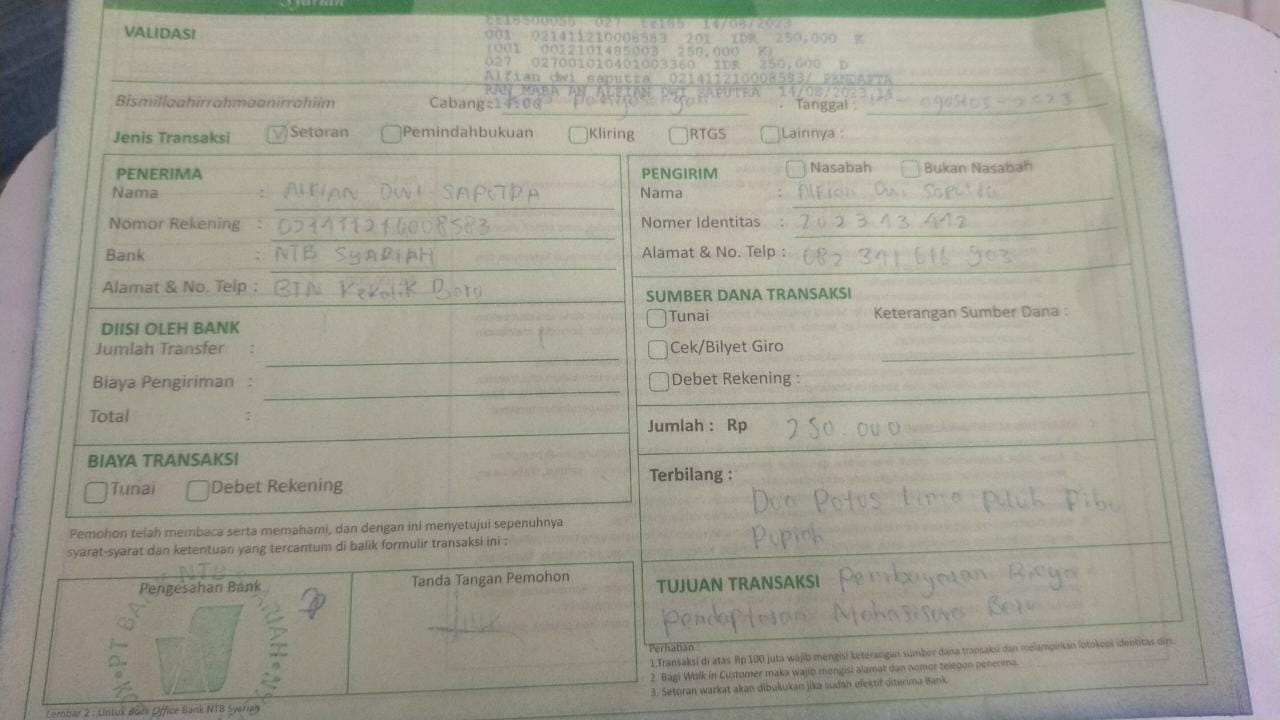 Syariah
VALIDASI
EE18500055 027 EE185 14/08/2023
001 021411210008583 201 IDR 250,000 K
(001 0012101485003 250,000 K)
027 027001010401003360 IDR 250,000 D
Alfian dwi saputra 021411210008583/ PENDAFTA
RAN MABA AN ALFIAN DWI SAPUTRA 14/08/2023,14
Bismillaahirrahmaanirrahiim Cabang : Tanggal : agustus - 2023
Jenis Transaksi Setoran Pemindahbukuan Kliring RTGS Lainnya :
PENERIMA
Nama : ALFIAN DWI SAPUTRA
Nomor Rekening : 021411210008583
Bank : NTB SYARIAH
Alamat & No. Telp : BTN Kekalik Baru
DIISI OLEH BANK
Jumlah Transfer :
Biaya Pengiriman :
Total :
BIAYA TRANSAKSI
Tunai Debet Rekening
Pemohon telah membaca serta memahami, dan dengan ini menyetujui sepenuhnya
syarat-syarat dan ketentuan yang tercantum di balik formulir transaksi ini :
Pengesahan Bank
Tanda Tangan Pemohon
Lembar 2 : Untuk Back Office Bank NTB Syariah
PENGIRIM Nasabah Bukan Nasabah
Nama : Alfian Dwi Saputra
Nomer Identitas : 202313442
Alamat & No. Telp : 082 341 616 903
SUMBER DANA TRANSAKSI
Tunai Keterangan Sumber Dana :
Cek/Bilyet Giro
Debet Rekening :
Jumlah : Rp 250.000
Terbilang :
Dua Ratus Lima Puluh Ribu
Rupiah
TUJUAN TRANSAKSI Pembayaran Biaya
Pendaptaran Mahasiswa Baru
Perhatian :
1.Transaksi di atas Rp 100 juta wajib mengisi keterangan sumber dana transaksi dan melampirkan fotokopi identitas diri.
2. Bagi Walk in Customer maka wajib mengisi alamat dan nomor telepon penerima.
3. Setoran warkat akan dibukukan jika sudah efektif diterima Bank.